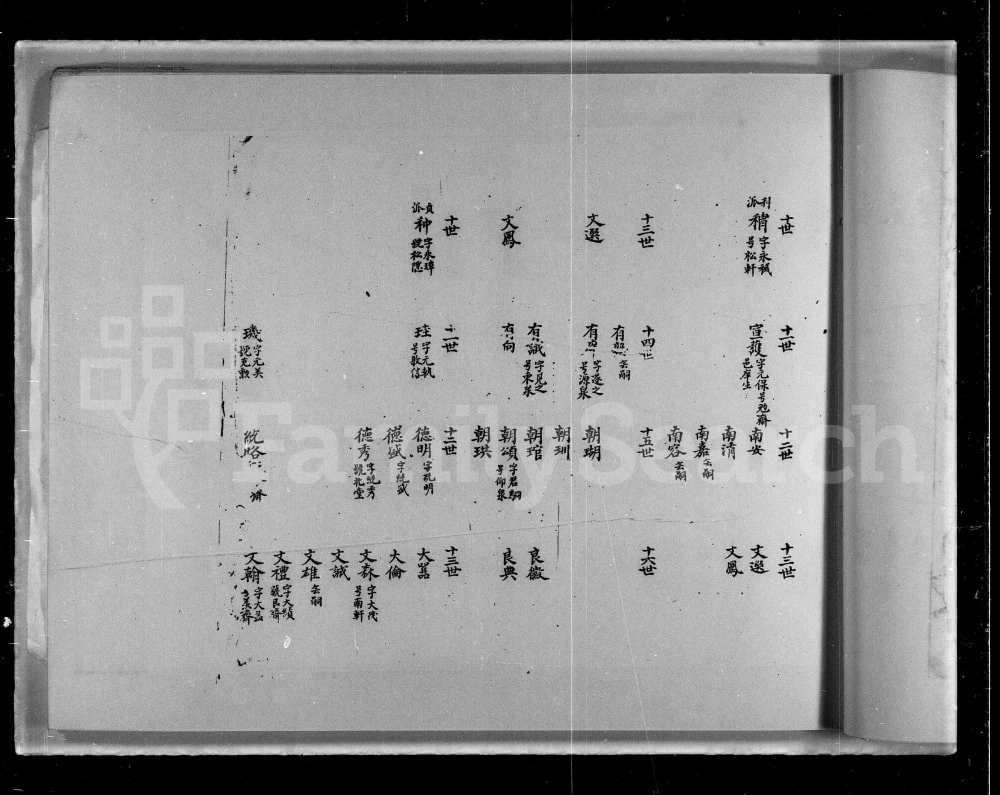 十世
利派 稍 字永祯 号松軒
十一世
宣護 字元保号勉齋 邑庠生
十二世
南安
南清
南嘉 缺嗣
南容 缺嗣
十三世
文選
文鳳
十三世
文選
文鳳
十四世
有 缺嗣
有 字遵之 号源泉
有誠 字見之 号東泉
有向
十五世
朝瑚
朝玔
朝琯
朝頌 字君嗣 号仰泉
朝珙
十六世
良徽
良典
十世
貞派 种 字永璋 號松隐
十一世
珪 字元執 号敦信
璣 字元美 號克勲
十二世
德明 字孔明
德盛 字统盛
德秀 字统秀 號北堂
统 齊
十三世
大器
大倫
文森 字大茂 号南軒
文誠
文雄 缺嗣
文禮 字大顕 號民齋
文翰 字大 義齋
FamilySearch